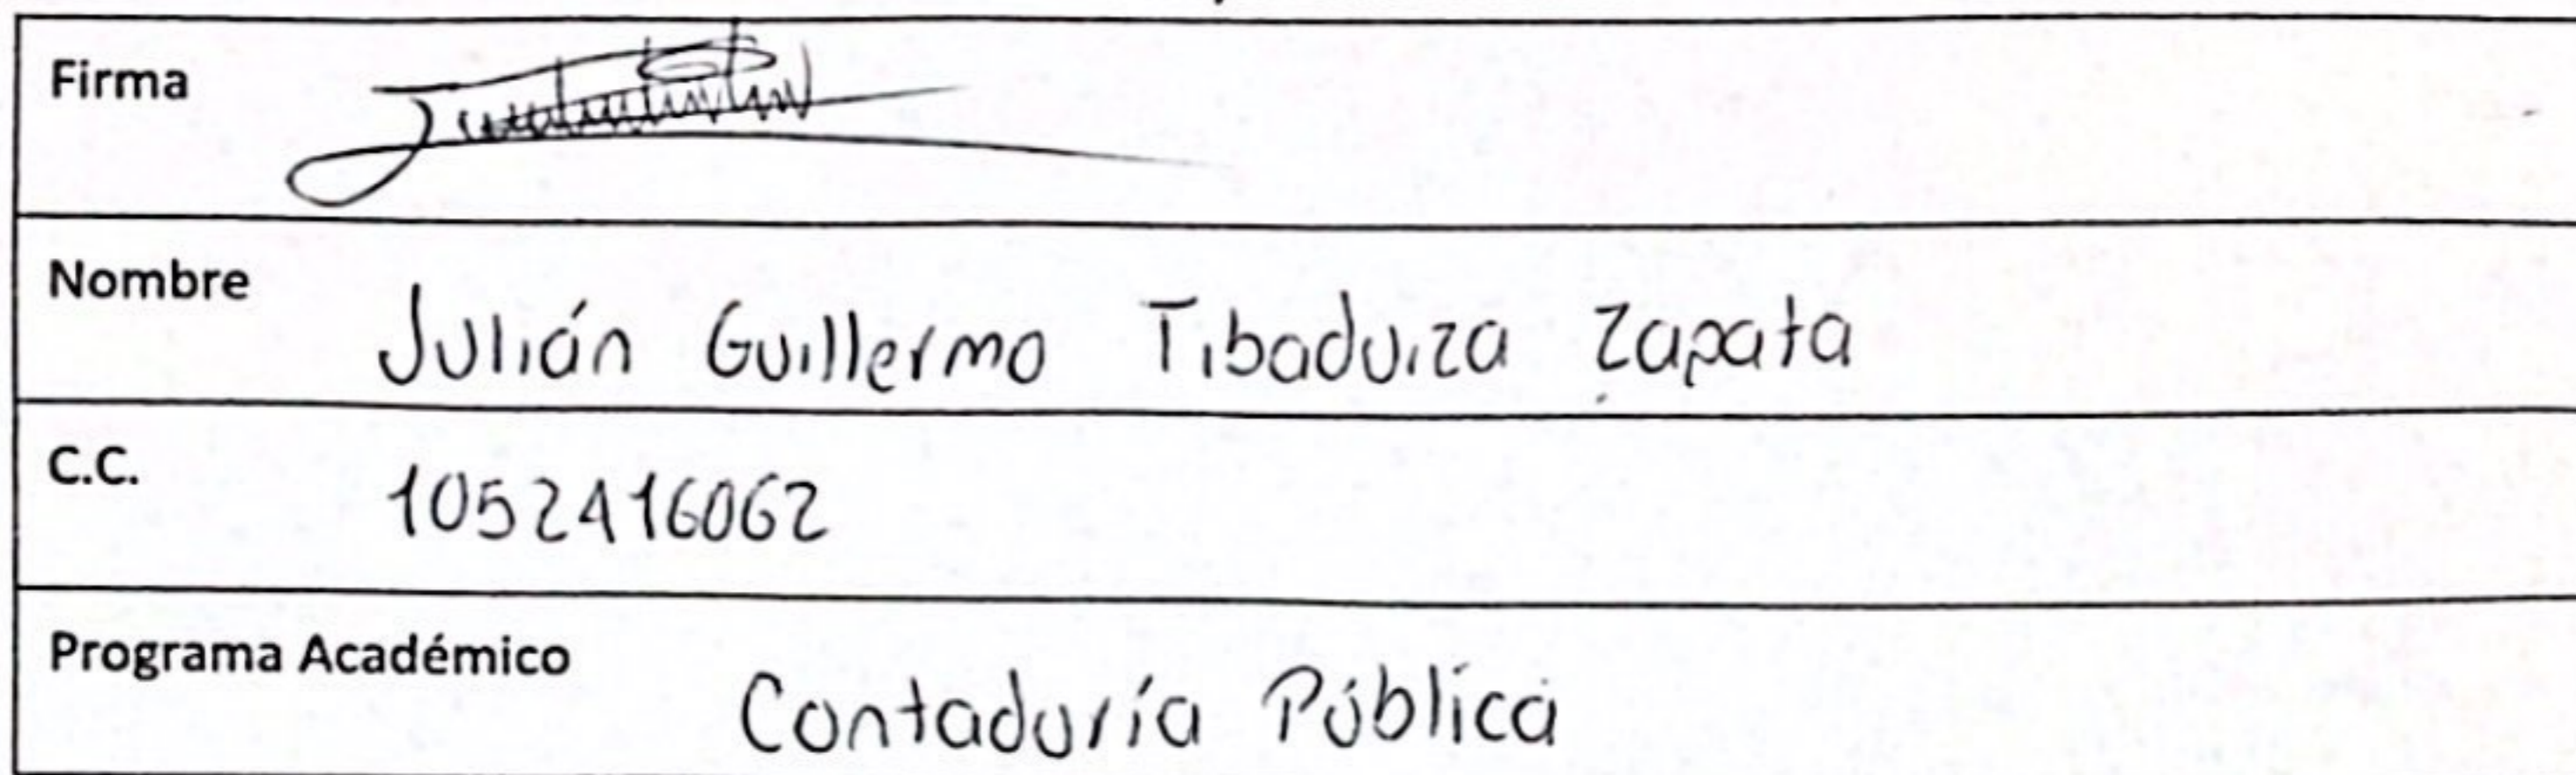 Firma
Nombre Julián Guillermo Tibaduiza Zapata
C.C. 1052416062
Programa Académico Contaduría Pública